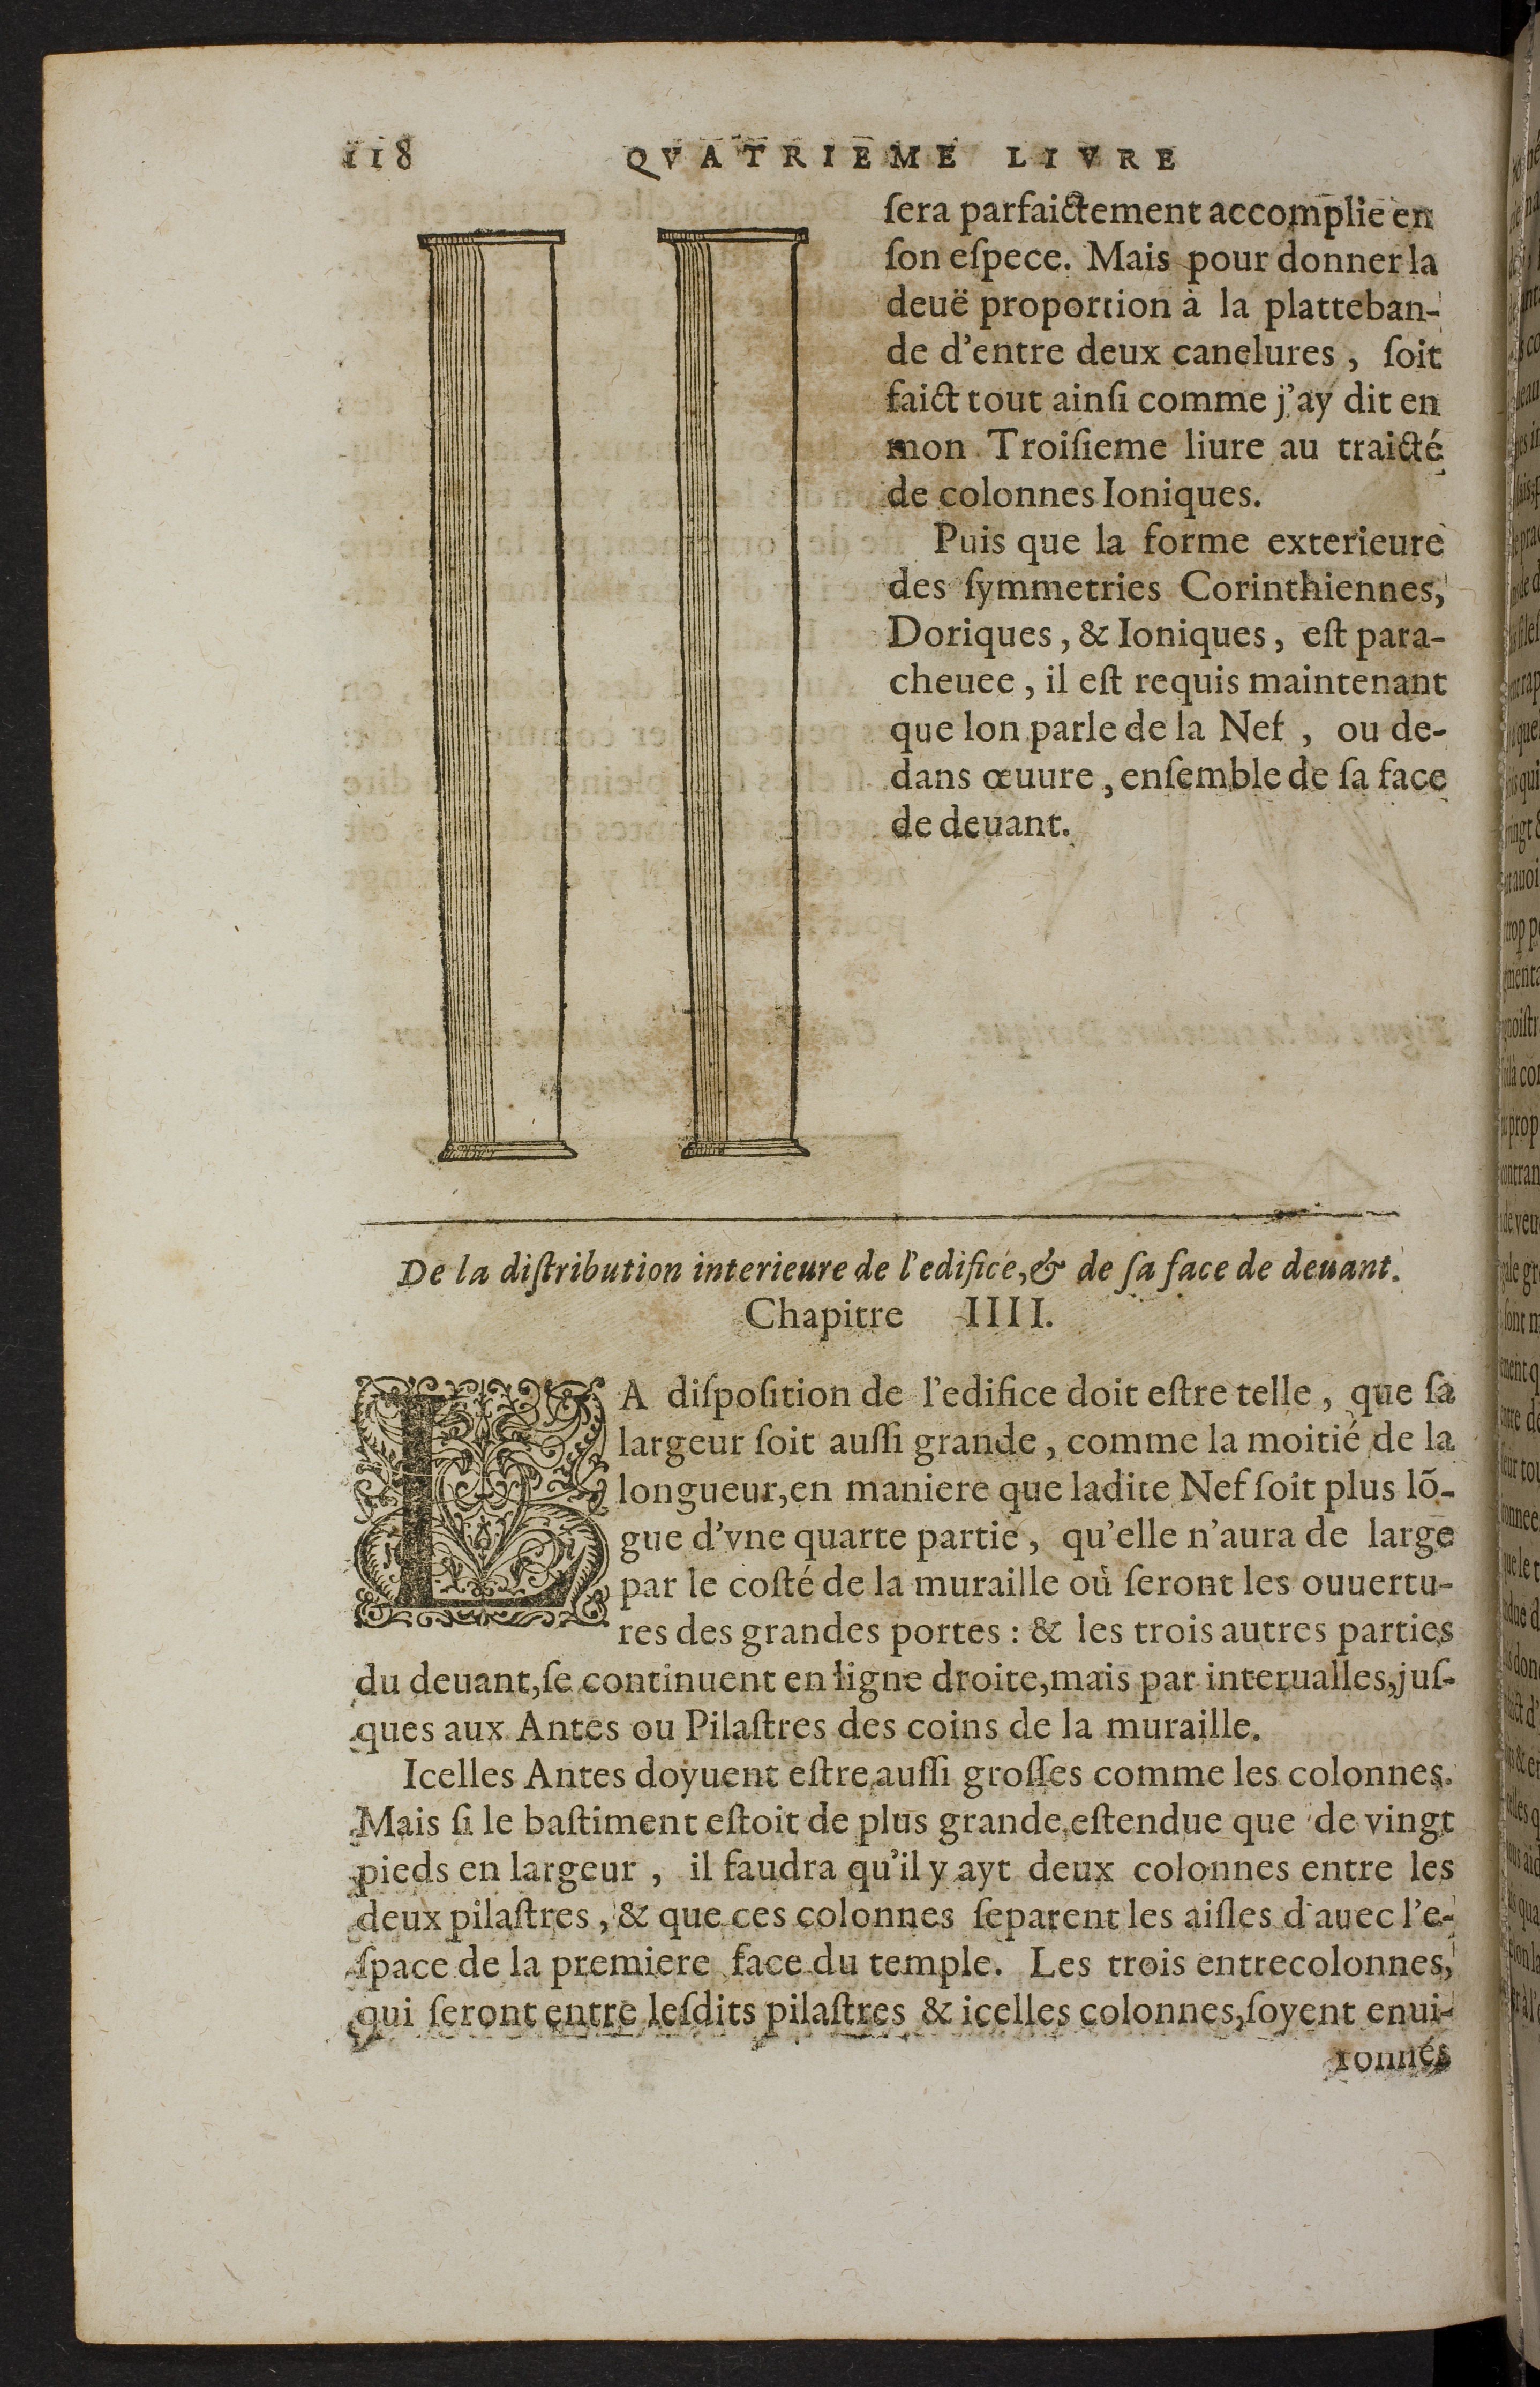 118 QVATRIEME LIVRE
ſera parfaictement accomplie en
ſon eſpece. Mais pour donner la
deuë proportion à la platteban-
de d'entre deux canelures, ſoit
faict tout ainſi comme j'ay dit en
mon Troiſieme liure au traicté
de colonnes Ioniques.
Puis que la forme exterieure
des ſymmetries Corinthiennes,
Doriques, & Ioniques, eſt para-
cheuee, il eſt requis maintenant
que lon parle de la Nef, ou de-
dans œuure, enſemble de ſa face
de deuant.
De la diſtribution interieure de l'edifice, & de ſa face de deuant.
Chapitre IIII.
LA diſpoſition de l'edifice doit eſtre telle, que ſa
largeur ſoit auſſi grande, comme la moitié de la
longueur, en maniere que ladite Nef ſoit plus lõ-
gue d'vne quarte partie, qu'elle n'aura de large
par le coſté de la muraille où ſeront les ouuertu-
res des grandes portes : & les trois autres parties
du deuant, ſe continuent en ligne droite, mais par interualles, juſ-
ques aux Antes ou Pilaſtres des coins de la muraille.
Icelles Antes doyuent eſtre auſſi groſſes comme les colonnes.
Mais ſi le baſtiment eſtoit de plus grande eſtendue que de vingt
pieds en largeur, il faudra qu'il y ayt deux colonnes entre les
deux pilaſtres, & que ces colonnes ſeparent les aiſles d'auec l'e-
ſpace de la premiere face du temple. Les trois entrecolonnes,
qui ſeront entre leſdits pilaſtres & icelles colonnes, ſoyent enui-
ronnés